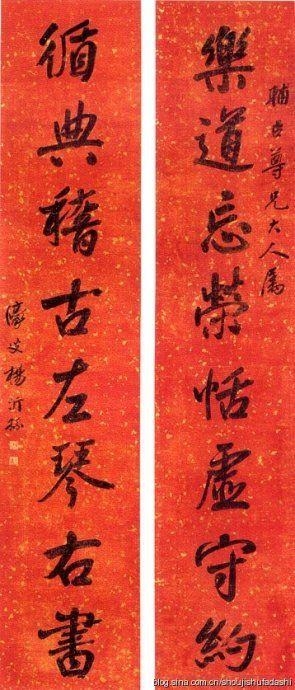 輔臣尊兄大人属
樂道忘榮恬虛守約
循典稽古左琴右書
濠叟楊沂孫
blog.sina.com.cn/shoujishufadashi